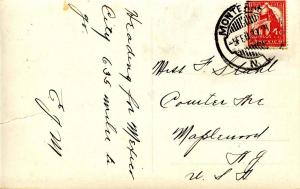 Heading for Mexico
City 635 miles to
go.
EGM
MONTE
N.
MEXICO
Miss F. Stahl
Courter Ave
Maplewood
N J
U S A